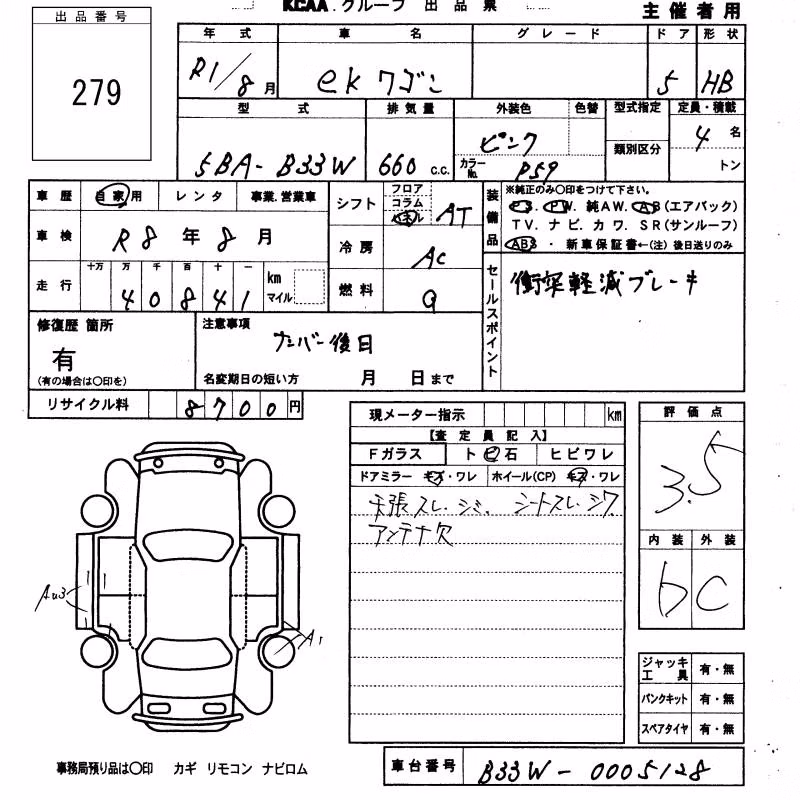 KCAA.グループ 出品票
主催者用
出品番号
279
年式 車名 グレード ドア 形状
R1/8月 ekワゴン 5 HB
型式 排気量 外装色 色替 型式指定 定員・積載
5BA-B33W 660 c.c. ピンク カラーNo. P59 類別区分 4名
トン
車歴 自家用 レンタ 事業.営業車
車検 R8年8月
走行 十万 万 千 百 十 一
40841 km マイル
シフト フロア コラム パネル AT
冷房 AC
燃料 G
装備品 ※純正のみ〇印をつけて下さい。
P.S. P.W. 純A.W. A.B(エアバック)
T.V. ナビ. カワ. S.R(サンルーフ)
ABS ・ 新車保証書←(注) 後日送りのみ
セールスポイント
衝突軽減ブレーキ
修復歴 箇所
有
(有の場合は〇印を)
注意事項
ナンバー後日
名変期日の短い方 月 日まで
リサイクル料 8700円
現メーター指示 km
【査定員記入】
Fガラス ト ビ 石 ヒビワレ
ドアミラー キズ・ワレ ホイール(CP) キズ・ワレ
天張スレ.シミ. シートスレ.シワ
アンテナ欠
評価点
3.5
内装 外装
b C
AU3
A1
ジャッキ工具 有・無
パンクキット 有・無
スペアタイヤ 有・無
事務局預り品は〇印 カギ リモコン ナビロム
車台番号 B33W-0005128